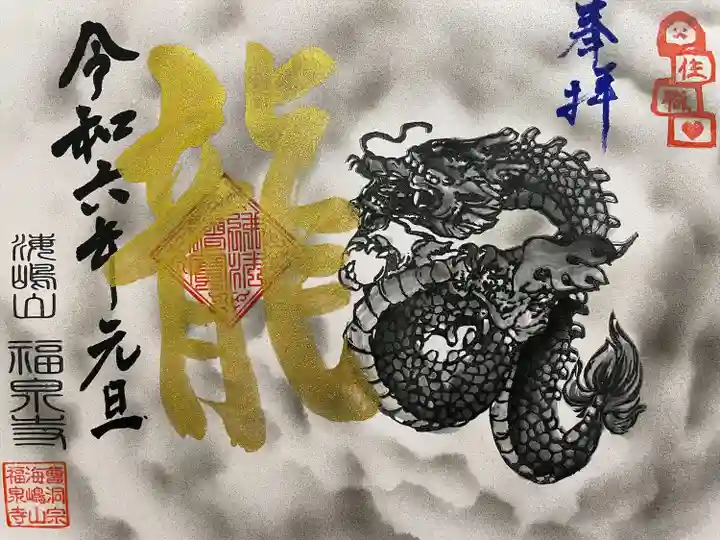 奉拝
龍
令和六年元旦
海嶋山 福泉寺
曹洞宗
海嶋山
福泉寺